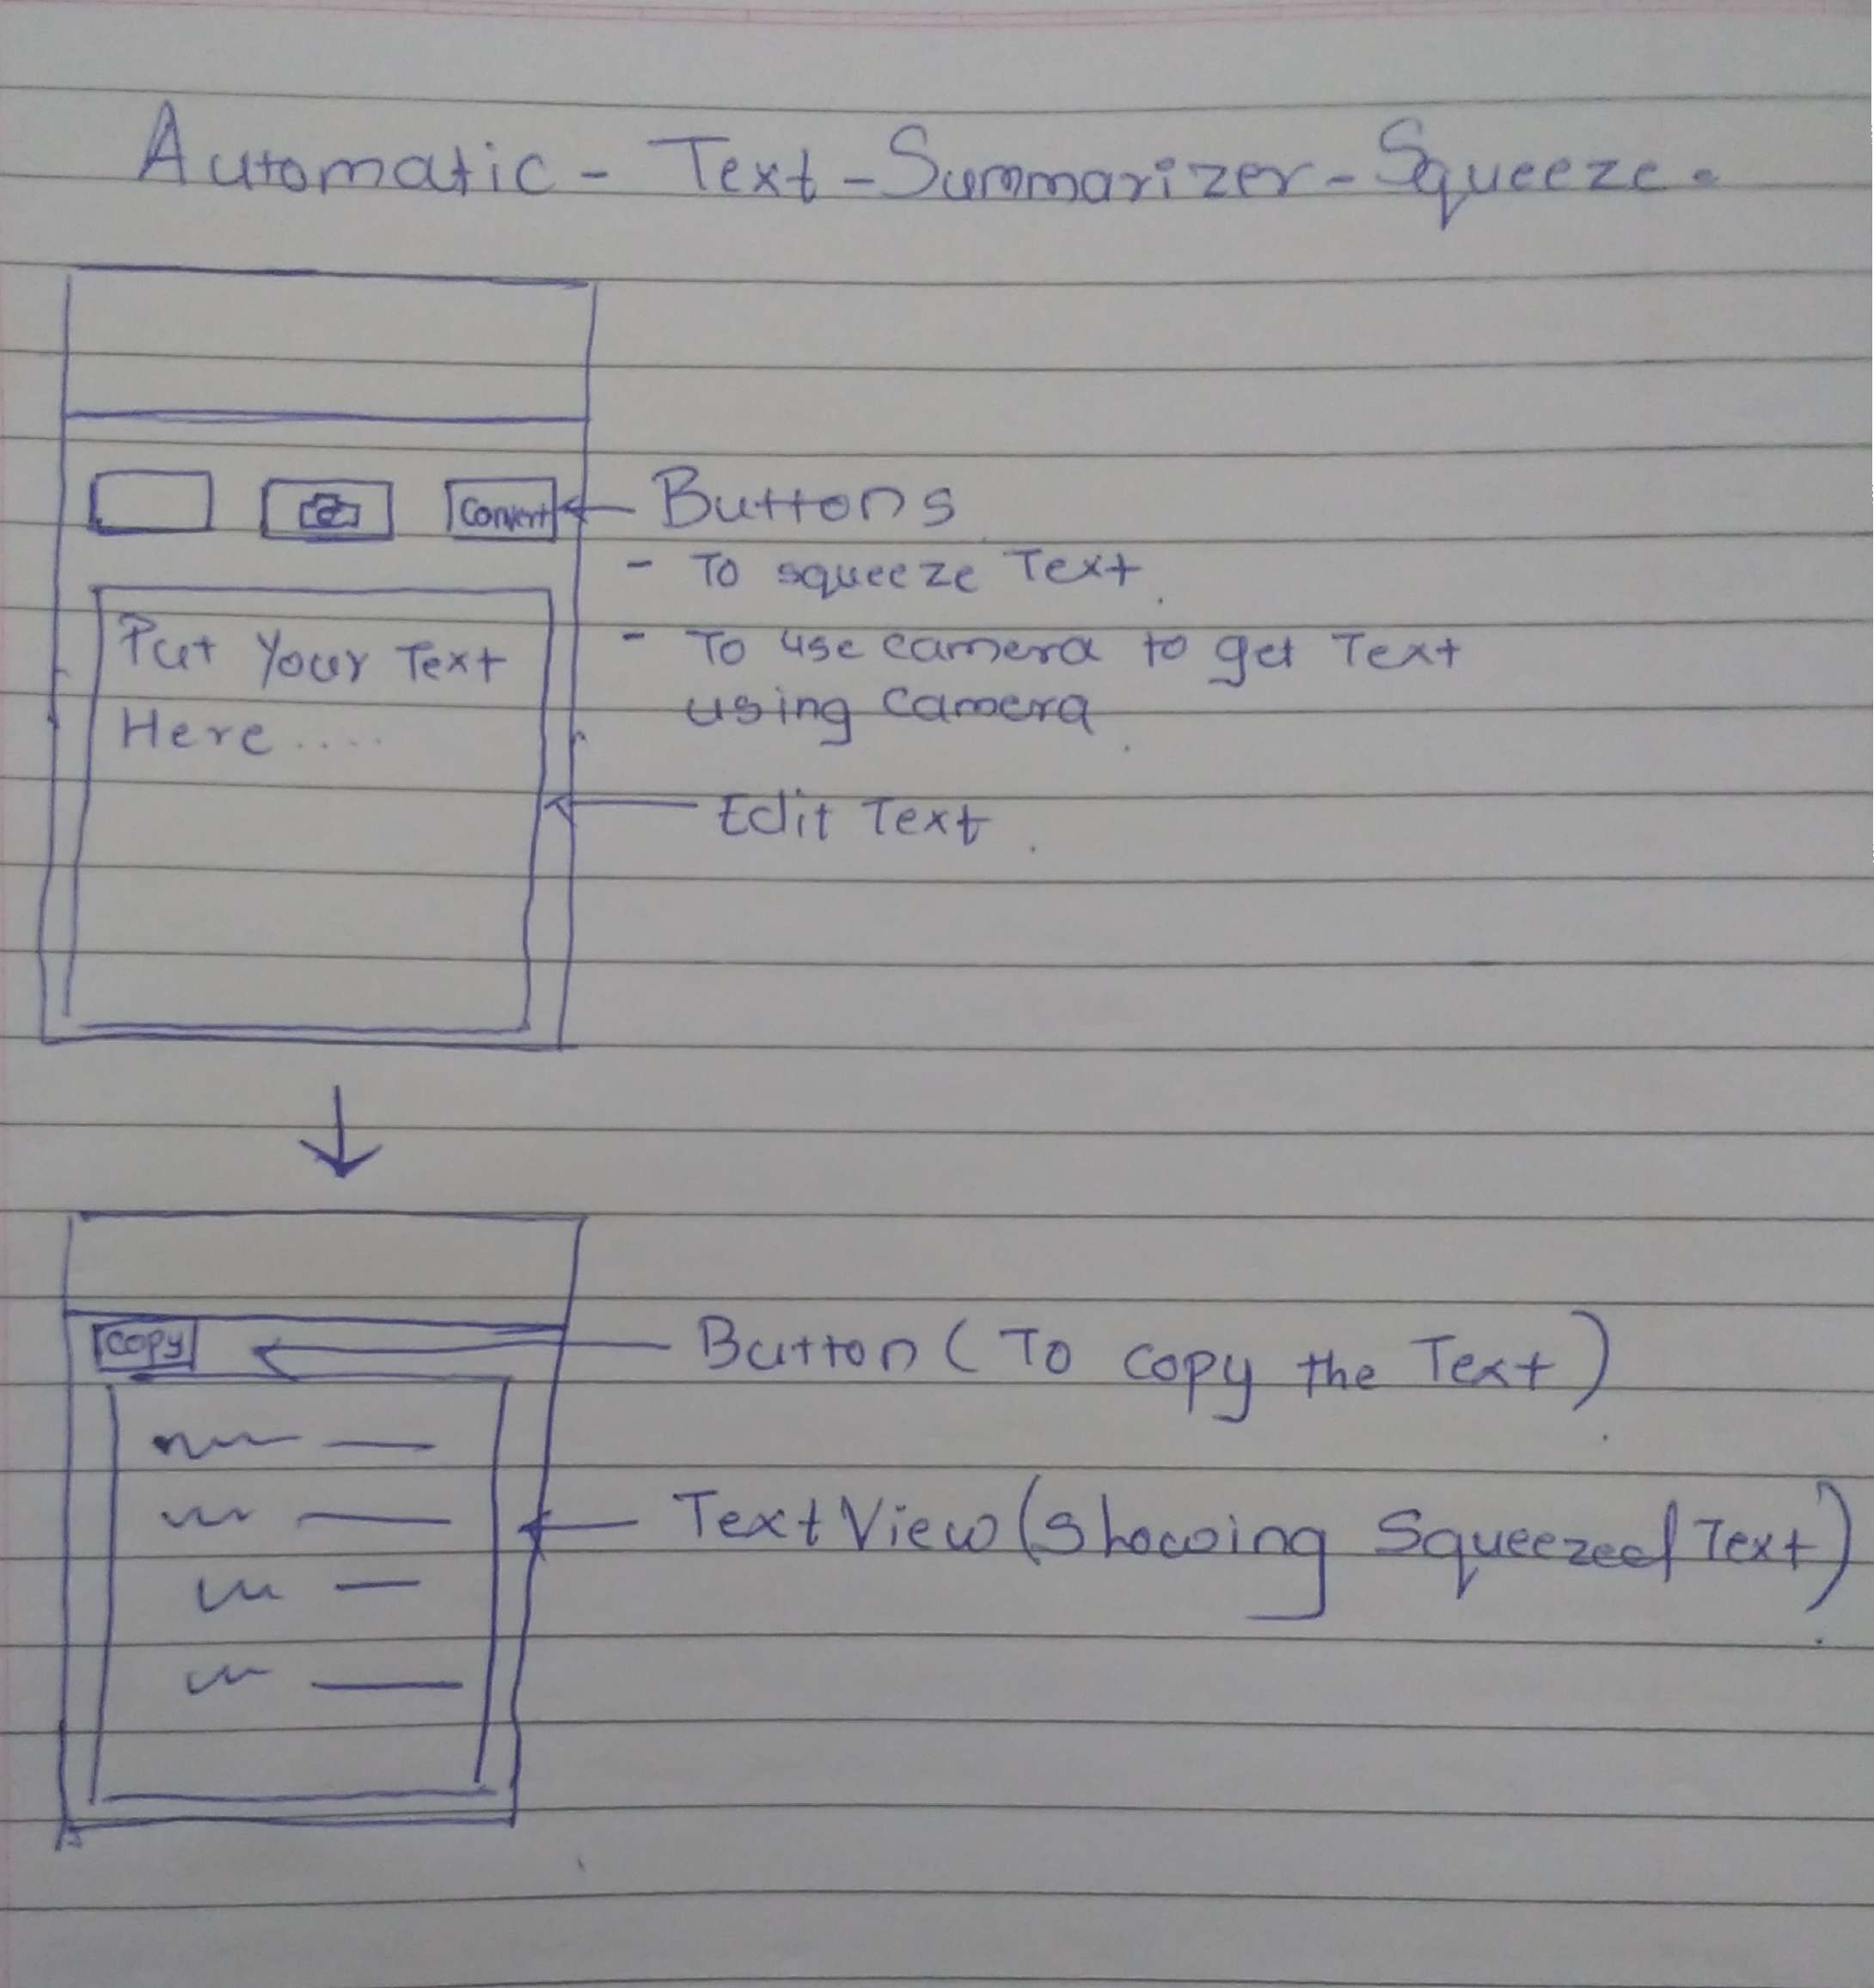 Automatic - Text - Summarizer - Squeeze.
Convert
Buttons
- To squeeze Text.
- To use camera to get Text
using Camera.
Put Your Text
Here....
Edit Text.
Copy
Button (To copy the Text).
Text View (Showing Squeezed Text).